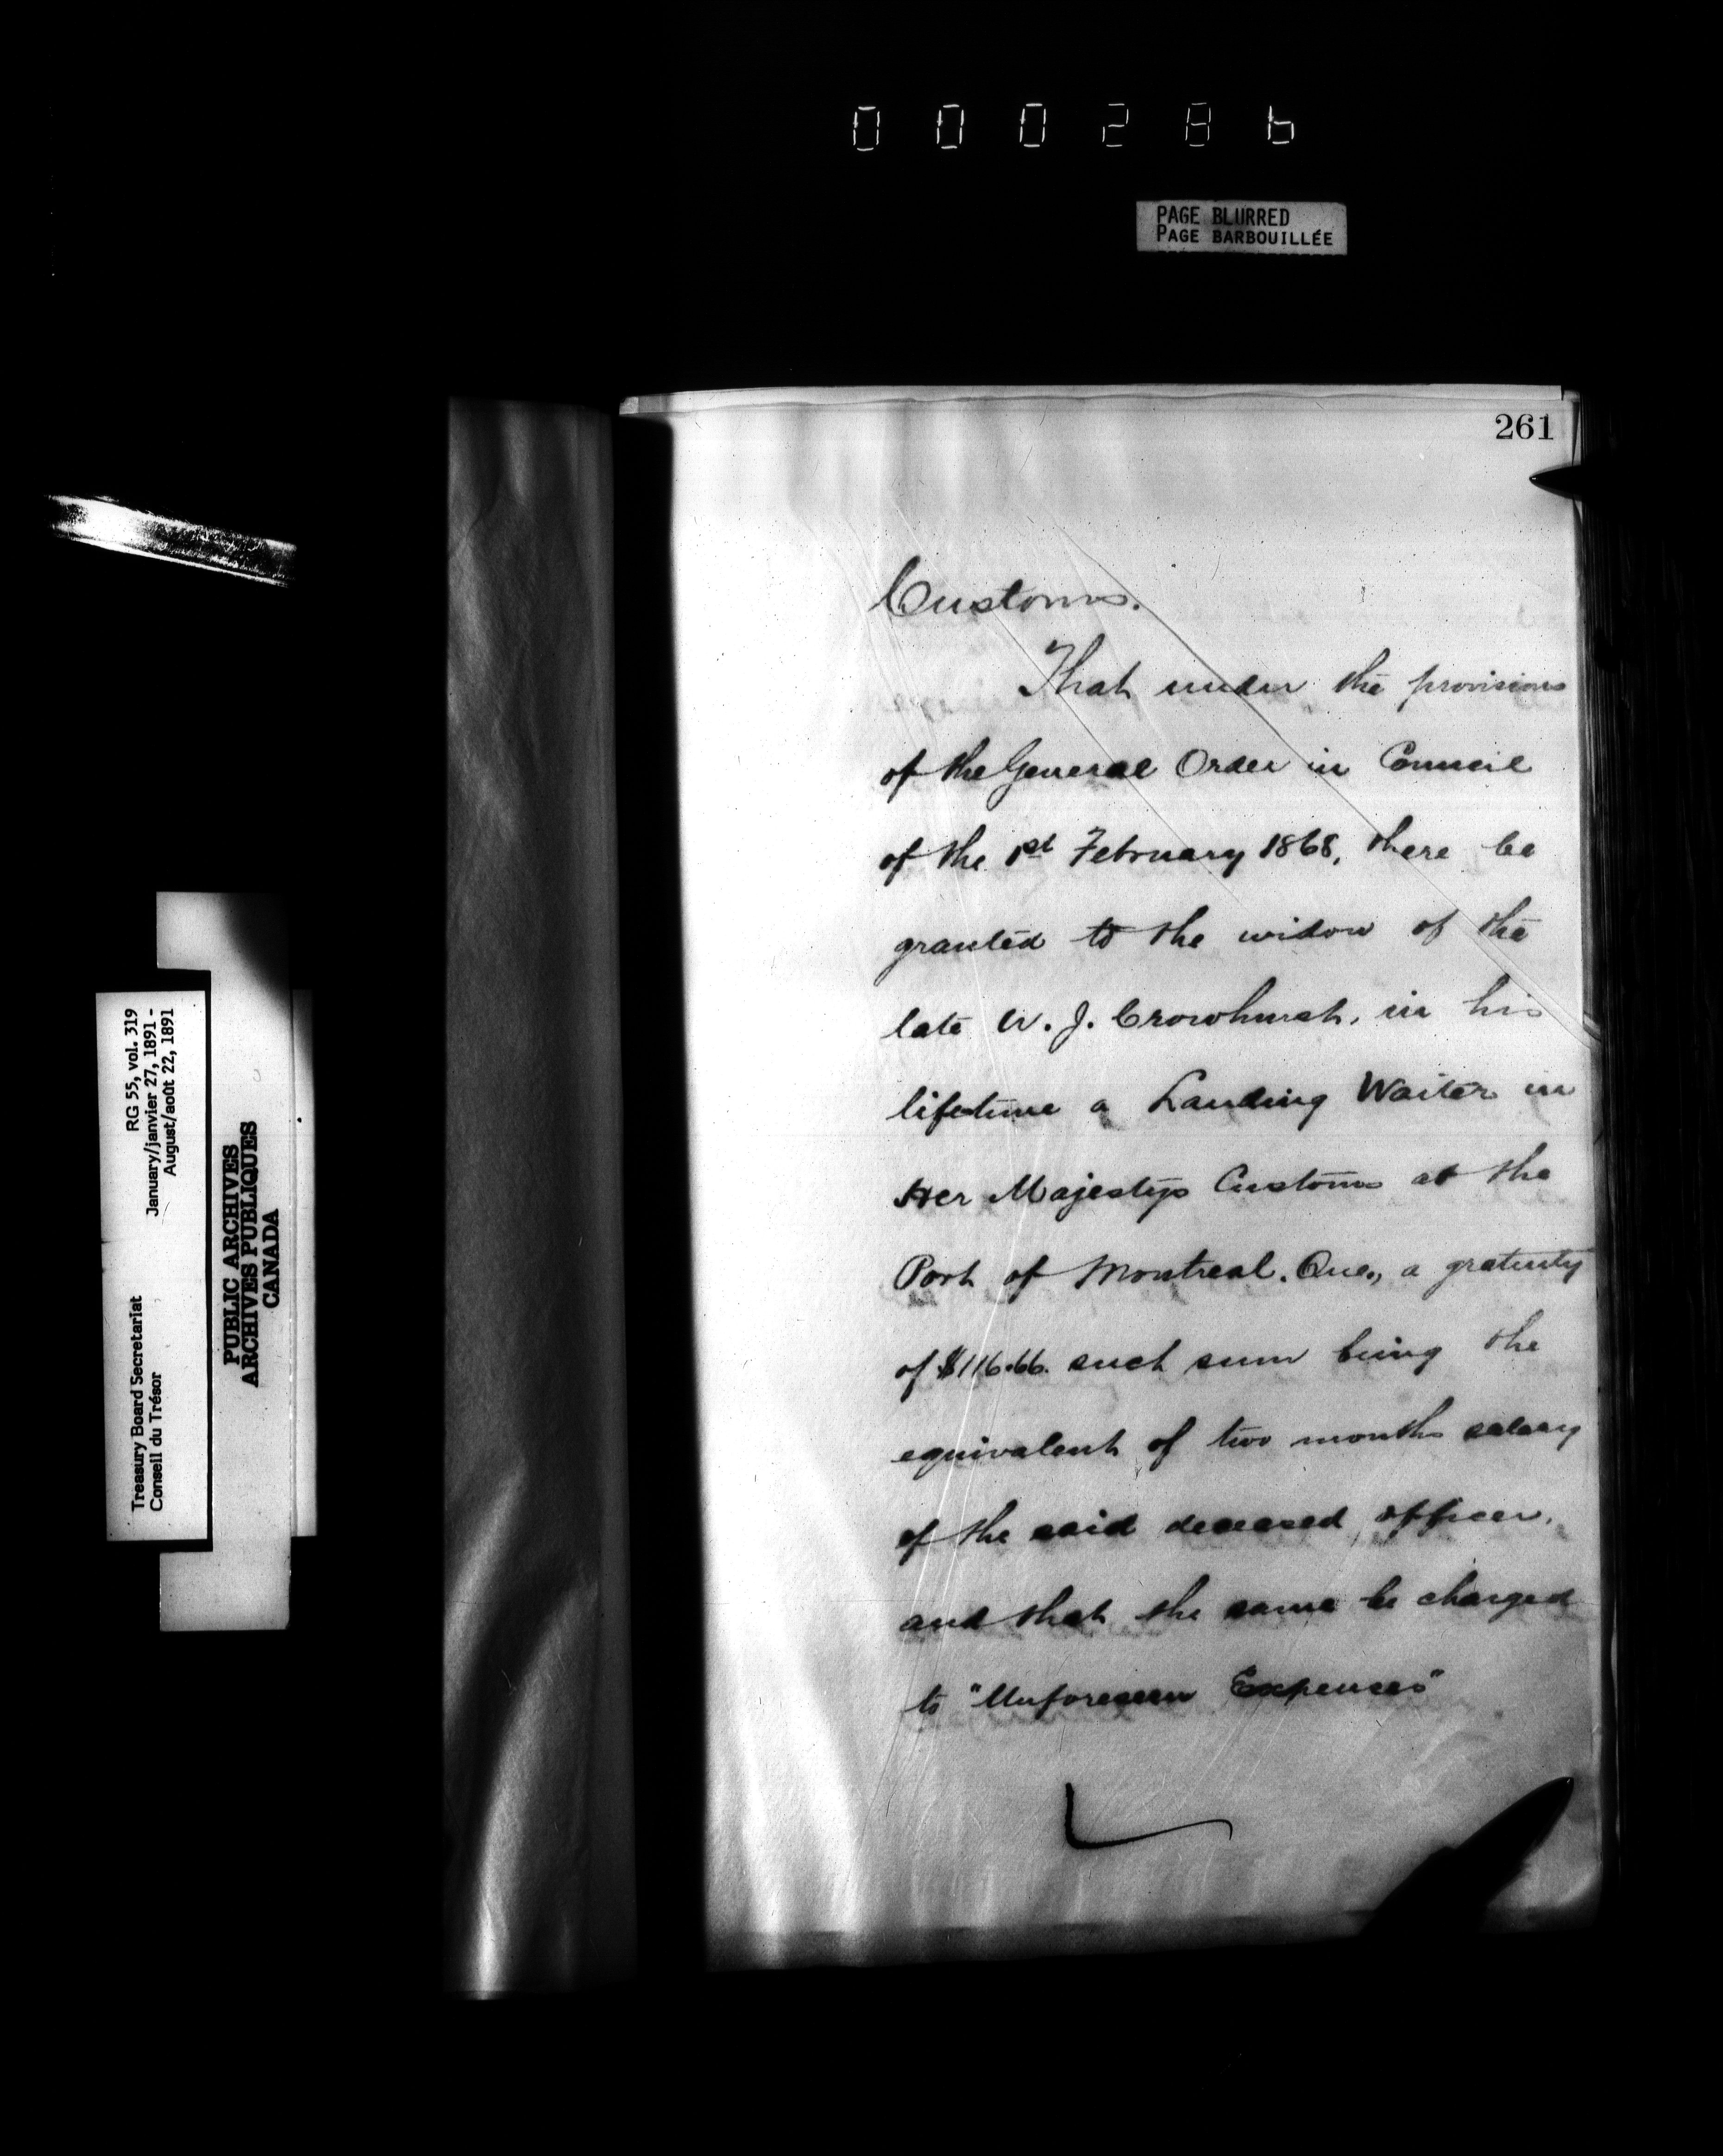 000286
PAGE BLURRED
PAGE BARBOUILLÉE
261
Customs.
That under the provisions
of the General Order in Council
of the 1st February 1868, there be
granted to the widow of the
late W. J. Crowhurst, in his
lifetime a Landing Waiter in
Her Majestys Customs at the
Port of Montreal. Que., a gratuity
of $116.66. such sum being the
equivalent of two months salary
of the said deceased officer,
and that the same be charged
to "Unforeseen Expenses"
Treasury Board Secretariat RG 55, vol. 319
Conseil du Trésor January/janvier 27, 1891 -
August/août 22, 1891
PUBLIC ARCHIVES
ARCHIVES PUBLIQUES
CANADA